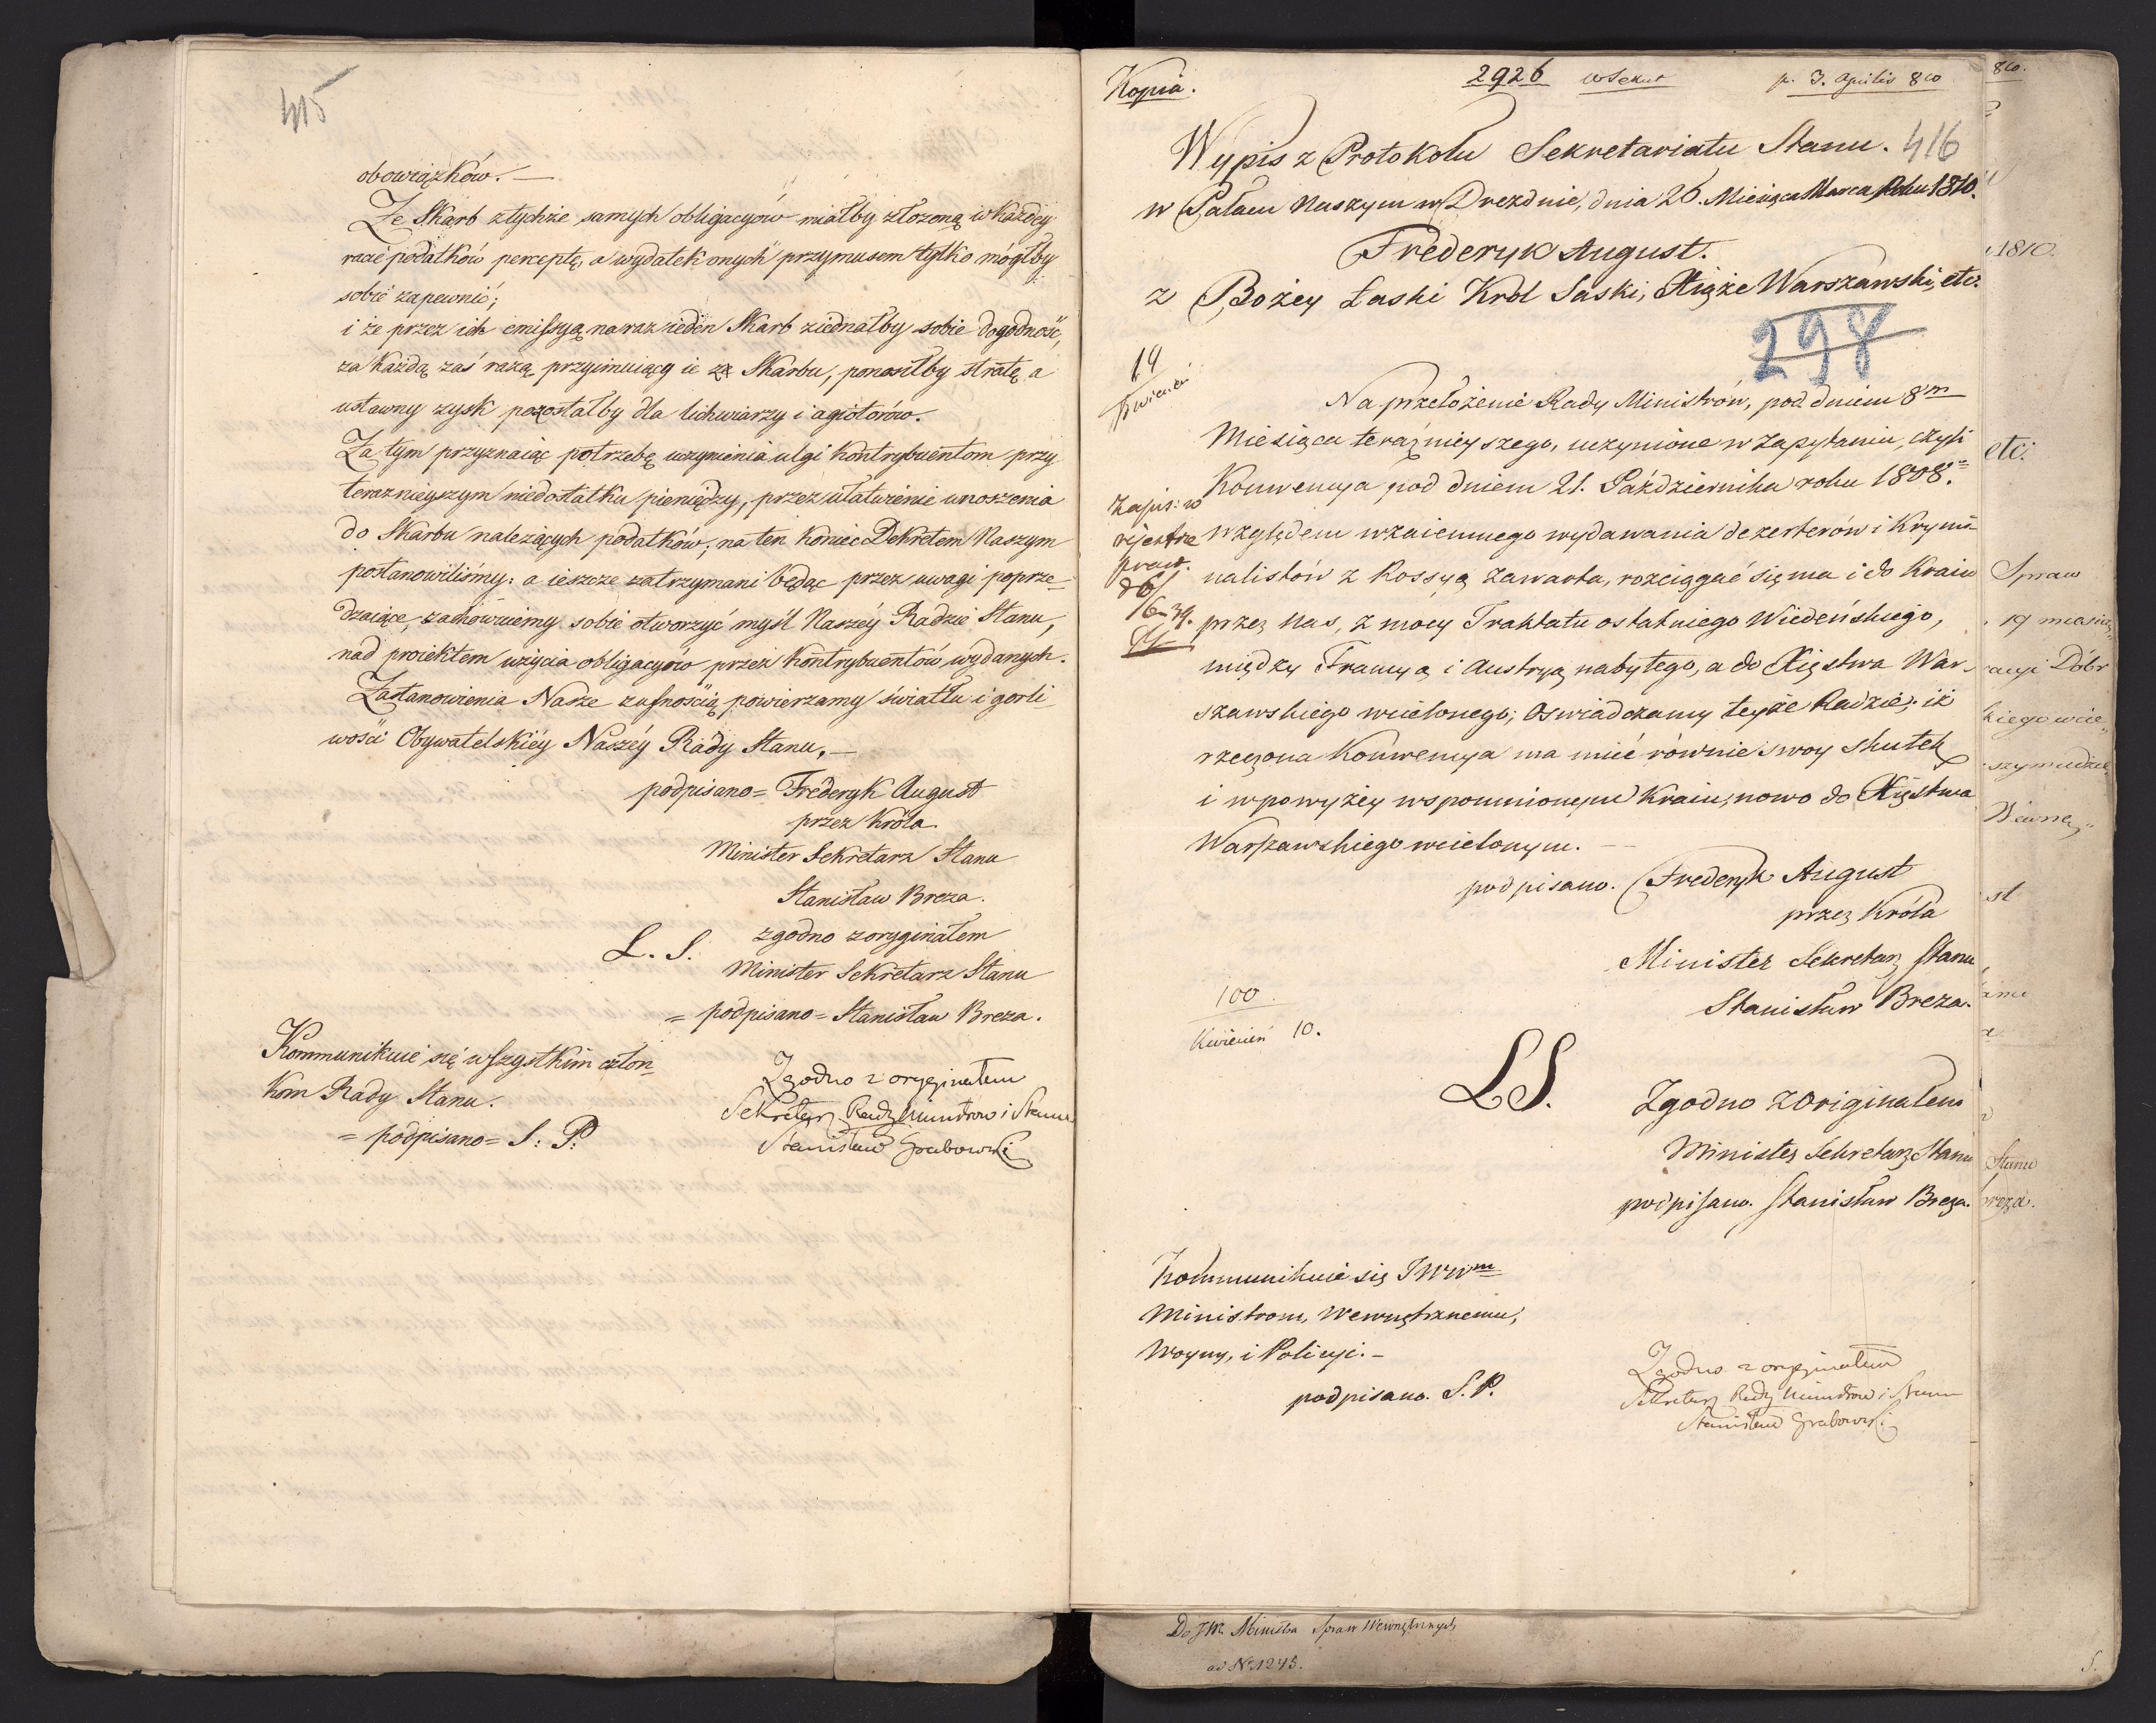 415
obowiązków. —
Że Skarb ztychże samych obligacyów miałby złożoną w każdey
racie podatków perceptę, a wydatek onych przymusem tylko mógłby
sobie zapewnić;
i że przez ich emissyą na raz ieden Skarb ziednałby sobie dogodność,
za każdą zaś razą przyimuiąc ie za Skarbu, ponosiłby stratę a
ustawny zysk pozostałby dla lichwiarzy i agiotorów.
Za tym przyznaiąc potrzebę uczynienia ulgi kontrybuentom przy
teraznieyszym niedostatku pieniędzy, przez ułatwienie wnoszenia
do Skarbu należących podatków, na ten koniec Dekretem Naszym
postanowiliśmy: a ieszcze zatrzymani będąc przez uwagi poprze-
dzaiące, zachowuiemy sobie otworzyć myśl Naszéy Radzie Stanu,
nad proiektem użycia obligacyów przez kontrybuentów wydanych.
Zastanowienia Nasze zufnością powierzamy światłu i gorli
wości Obywatelskiéy Naszéy Rady Stanu, —
podpisano = Fréderyk August
przez Króla
Minister Sekretarz Stanu
Stanisław Breza.
L. S. zgodno zoryginałem
Minister Sekretarz Stanu
= podpisano = Stanisław Breza.
Kommunikuie się wszystkim człon-
kom Rady Stanu.
= podpisano = S: P:
Zgodno z oryginałem
Sekretarz Rady Ministrów i Stanu
Stanisław Grabowski
Kopia. 2926 p. 3. Aprilis 810
Wypis z Protokołu Sekretariatu Stanu. 416
w Pałacu Naszym w Dreźdnie, dnia 26. Miesiąca Marca Roku 1810.
Frederyk August.
z Bożey Łaski Król Saski, Xiąże Warszawski, etc:
298
19
Kwiecień
Na przełożenie Rady Ministrów, pod dniem 8m
Miesiąca teraźnieyszego, uczynione w zapytaniu, czyli
Konwencya pod dniem 21. Października roku 1808.
zapis: w
rejestrze
względem wzaiemnego wydawania dezerterów i Krymi-
nalistów z Rossyą zawarta, rozciągać się ma i do Kraiu
przez Nas, z mocy Traktatu ostatniego Wiedeńskiego,
między Francyą i Austryą nabytego, a do Xięstwa War-
szawskiego wcielonego; Oswiadczamy teyże Radzie, iż
rzeczona Konwencya ma mieć równie swoy skutek
i w powyżey wspomnionym Kraiu, nowo do Xięstwa
Warszawskiego wcielonym. —
podpisano. Frederyk August
przez Króla
Minister Sekretarz Stanu
Stanisław Breza.
100
Kwiecień 10.
LS. Zgodno z Originałem
Minister Sekretarz Stanu
podpisano. Stanisław Breza.
Kommunikuie się JWWm
Ministrom, Wewnętrznemu,
Woyny, i Policyi. —
podpisano. S. P.
Zgodno z oryginałem
Sekretarz Rady Ministrów i Stanu
Stanisław Grabowski
Do JW. Ministra Spraw Wewnętrznych
ad No. 1245.
810.
1810.
etc:
Spraw
19 miesią
Dóbr
kiego wcie
Wewnę
st
Stanu
breza.